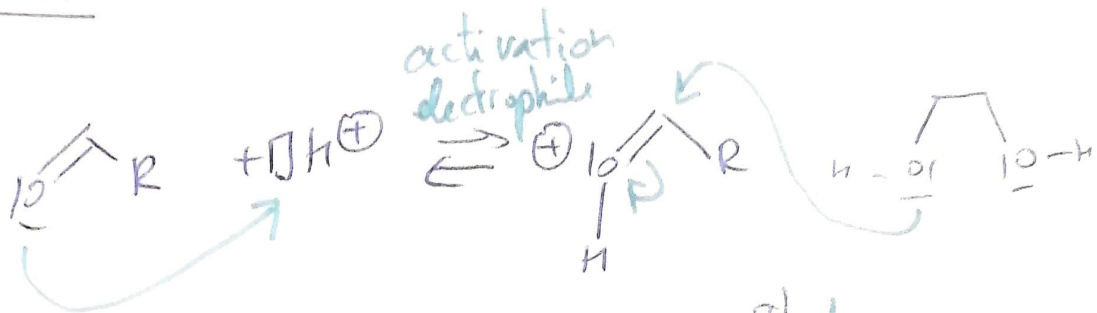 activation
electrophile
O R + H ⊕ ⊕ O H R H - O O - H